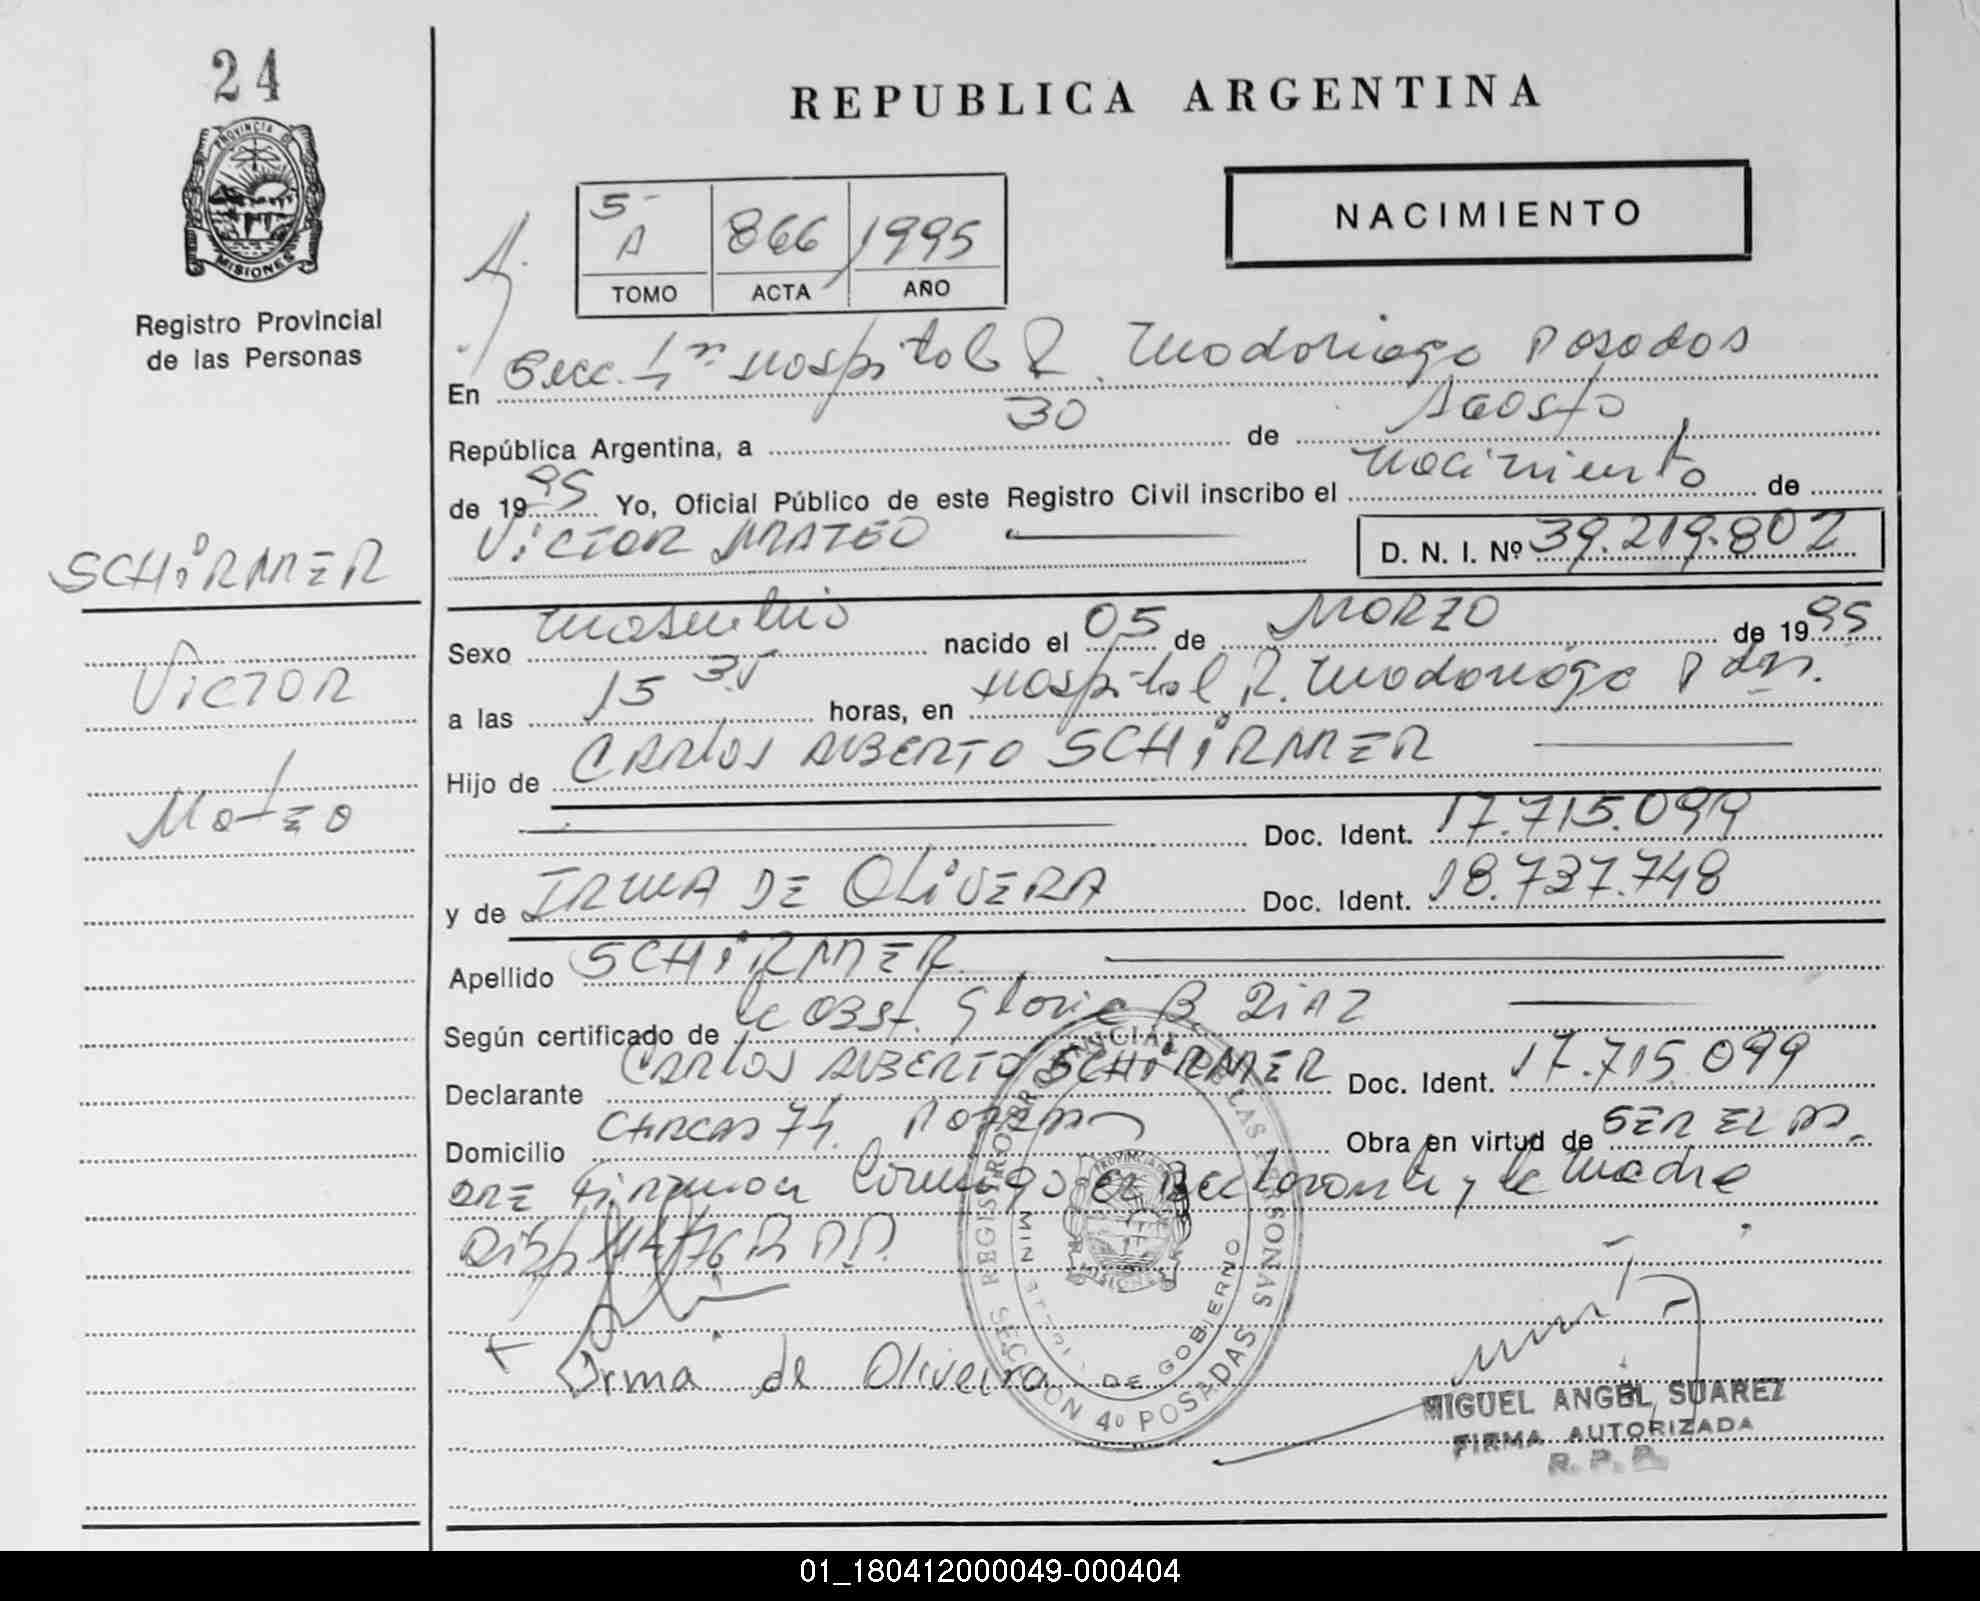 24
PROVINCIA DE
MISIONES
Registro Provincial
de las Personas
SCHiRMER
Victor
Mateo
REPUBLICA ARGENTINA
NACIMIENTO
5-
A 866 1995
TOMO ACTA AÑO
En Secc. 1ra Hospital R. Madariaga Posadas
República Argentina, a 30 de Agosto
de 1995 Yo, Oficial Público de este Registro Civil inscribo el nacimiento de
Victor MATEO D. N. I. Nº 39.219.802
Sexo masculino nacido el 05 de MARZO de 1995
a las 15 35 horas, en Hospital R. Madariaga Pdas.
Hijo de CARlos AlBERTO SCHiRMER
Doc. Ident. 17.715.099
y de IRMA DE OLiVERA Doc. Ident. 18.737.748
Apellido SCHiRMER
Según certificado de la OBst. Gloria B. DiAZ
Declarante CARlos AlBERTO SCHiRMER Doc. Ident. 17.715.099
Domicilio CHACAS 74. Obra en virtud de SER EL PA-
DRE Firman Conmigo el Declarante y la Madre
Disp 114/76 R.P.P.
Irma de Oliveira
REGISTRO PROVINCIAL DE LAS PERSONAS
MINISTERIO DE GOBIERNO
SECCION 4º POSADAS
PROVINCIA DE
MISIONES
MIGUEL ANGEL SUAREZ
FIRMA AUTORIZADA
R. P. P.
01_180412000049-000404